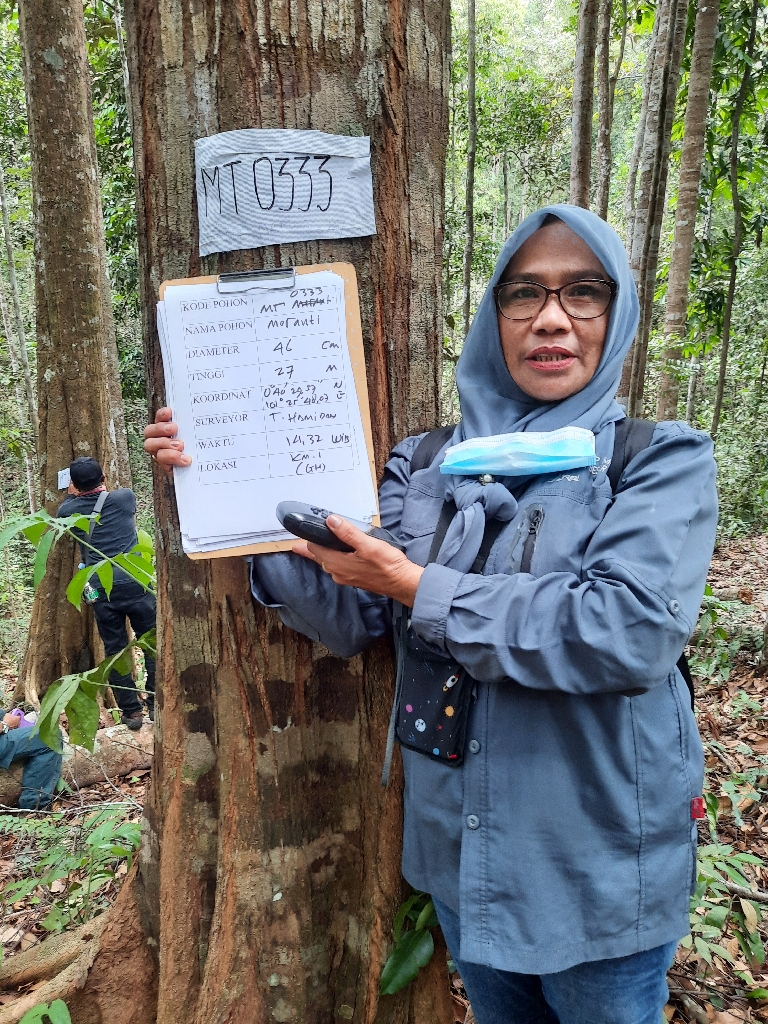 MT 0333
KODE POHON MT 0333
NAMA POHON Meranti
DIAMETER 46 cm
TINGGI 27 M
KOORDINAT 0° 40' 29,57" N
101° 25' 48,07" E
SURVEYOR T. Hamidan
WAKTU 14,32 WIB
LOKASI KM. 1
(GH)